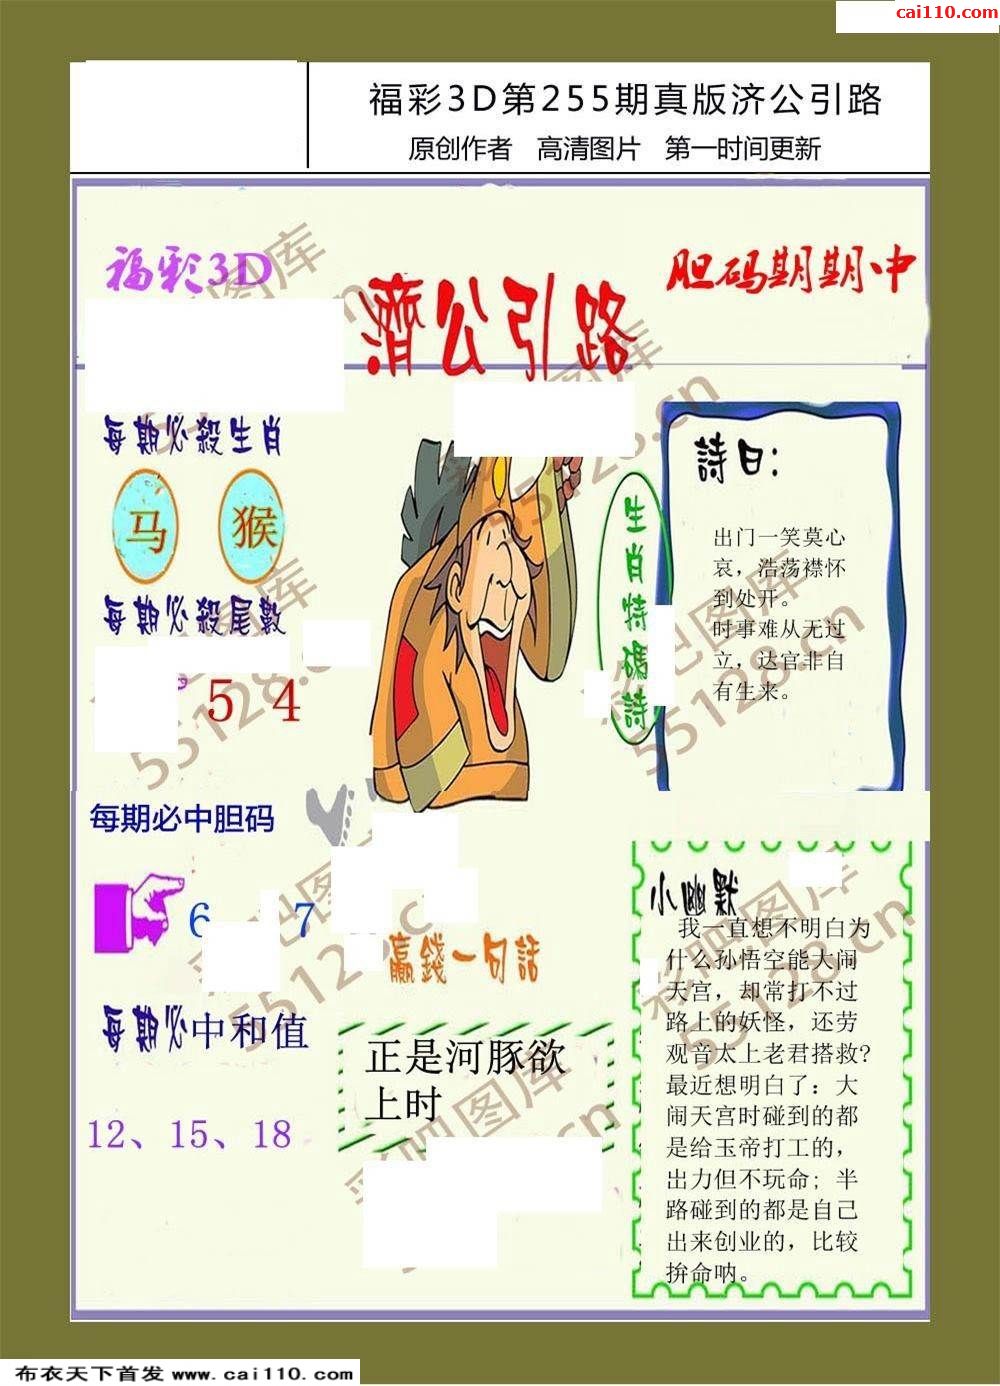 cai110.com
福彩3D第255期真版济公引路
原创作者 高清图片 第一时间更新
福彩3D
濟公引路
胆码期期中
每期必殺生肖
马 猴
每期必殺尾數
5 4
每期必中胆码
6 7
每期必中和值
12、15、18
生肖特碼詩
詩曰:
出门一笑莫心
哀，浩荡襟怀
到处开。
时事难从无过
立，达官非自
有生来。
赢錢一句話
正是河豚欲
上时
小幽默
我一直想不明白为
什么孙悟空能大闹
天宫，却常打不过
路上的妖怪，还劳
观音太上老君搭救?
最近想明白了：大
闹天宫时碰到的都
是给玉帝打工的，
出力但不玩命；半
路碰到的都是自己
出来创业的，比较
拚命呐。
彩吧图库
55128.cn
布衣天下首发 www.cai110.com